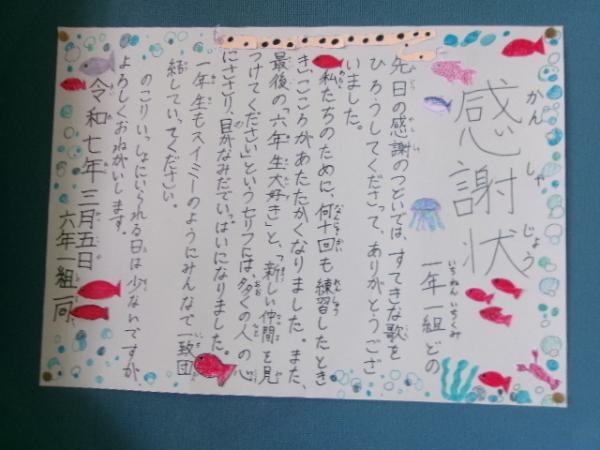 感謝状
かんしゃじょう
一年一組どの
いちねんいちくみ
先日の感謝のつどいでは、すてきな歌を
ひろうしてくださって、ありがとうござ
いました。
私たちのために、何十回も練習したとき
き、こころがあたたかくなりました。また、
最後の「六年生大好き」と、「新しい仲間を見
つけてください」というセリフには多くの人の心
にささり、目がなみだでいっぱいになりました。
一年生もスイミーのようにみんなで一致団
結していってください。
のこりいっしょにいられる日は少ないですが
よろしくおねがいします。
令和七年三月五日
六年一組一同